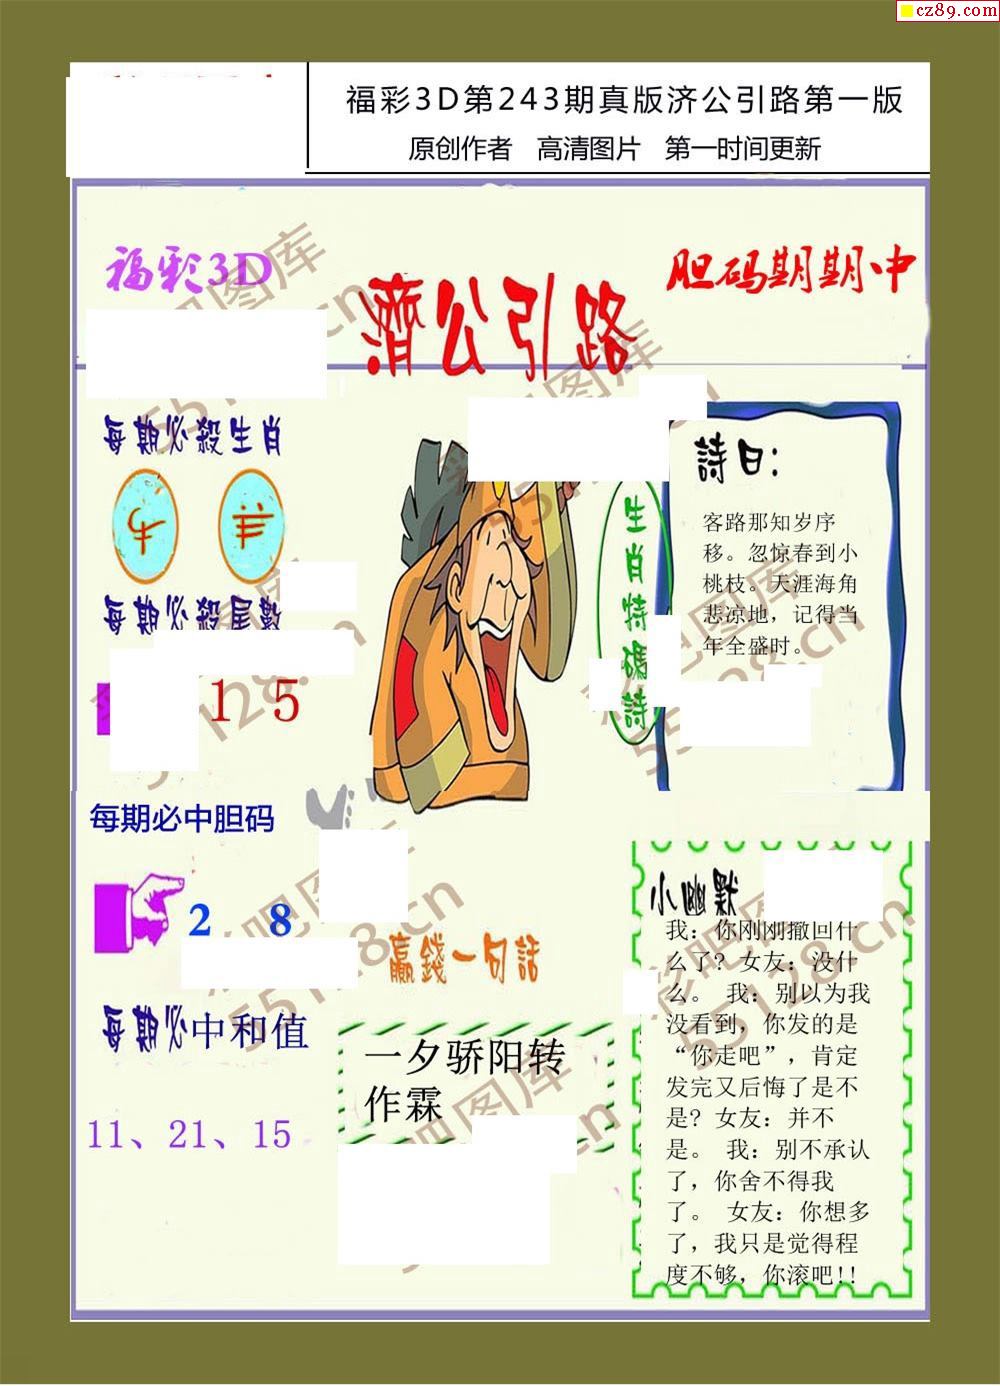 cz89.com
福彩3D第243期真版济公引路第一版
原创作者 高清图片 第一时间更新
福彩3D
胆码期期中
濟公引路
每期必殺生肖
牛 羊
每期必殺尾數
1 5
每期必中胆码
2 8
每期必中和值
11、21、15
生肖特碼詩
詩曰:
客路那知岁序
移。忽惊春到小
桃枝。天涯海角
悲凉地，记得当
年全盛时。
赢錢一句話
一夕骄阳转
作霖
小幽默
我：你刚刚撤回什
么了? 女友：没什
么。 我：别以为我
没看到，你发的是
“你走吧”，肯定
发完又后悔了是不
是? 女友：并不
是。 我：别不承认
了，你舍不得我
了。 女友：你想多
了，我只是觉得程
度不够，你滚吧!!
彩吧图库
55128.cn